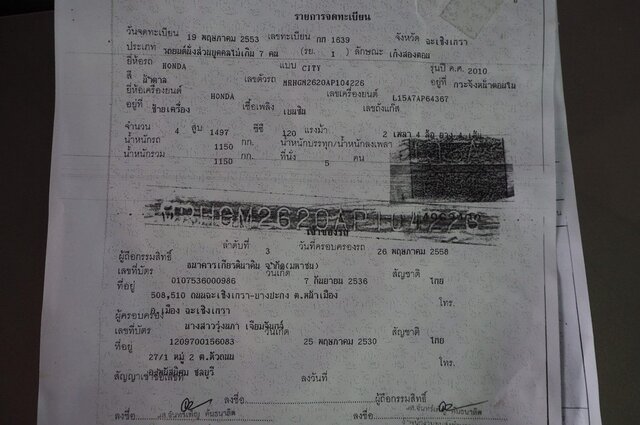 รายการจดทะเบียน
วันจดทะเบียน 19 พฤษภาคม 2553 เลขทะเบียน กก 1639 จังหวัด ฉะเชิงเทรา
ประเภท รถยนต์นั่งส่วนบุคคลไม่เกิน 7 คน (รย. 1 ) ลักษณะ เก๋งสองตอน
ยี่ห้อรถ HONDA แบบ CITY รุ่นปี ค.ศ. 2010
สี น้ำตาล เลขตัวรถ MRHGM2620AP104226 อยู่ที่
ยี่ห้อเครื่องยนต์ HONDA เลขเครื่องยนต์ L15A7AP64367
อยู่ที่ ซ้ายเครื่อง เชื้อเพลิง เบนซิน เลขถังแก๊ส
จำนวน 4 สูบ 1497 ซีซี 120 แรงม้า 2 เพลา 4 ล้อ ยาง 4 เส้น
น้ำหนักรถ 1150 กก. น้ำหนักบรรทุก/น้ำหนักลงเพลา
น้ำหนักรวม 1150 กก. ที่นั่ง 5 คน
MRHGM2620AP104226
เจ้าของรถ
ลำดับที่ 3 วันที่ครอบครองรถ 26 พฤษภาคม 2558
ผู้ถือกรรมสิทธิ์ ธนาคารเกียรตินาคิน จำกัด(มหาชน)
เลขที่บัตร 0107536000986 วันเกิด 7 กันยายน 2536 สัญชาติ ไทย
ที่อยู่ 508,510 ถนนฉะเชิงเทรา-บางปะกง ต.หน้าเมือง
อ.เมือง ฉะเชิงเทรา โทร.
ผู้ครอบครอง นางสาวรุ่งนภา
เลขที่บัตร 1209700156083 วันเกิด 25 พฤษภาคม 2530 สัญชาติ ไทย
ที่อยู่ 27/1 หมู่ 2 ต. โทร.
ชลบุรี
สัญญาเช่าซื้อเลขที่ ลงวันที่ ผู้ถือกรรมสิทธิ์
ลงชื่อ
ลงชื่อ ลงชื่อ